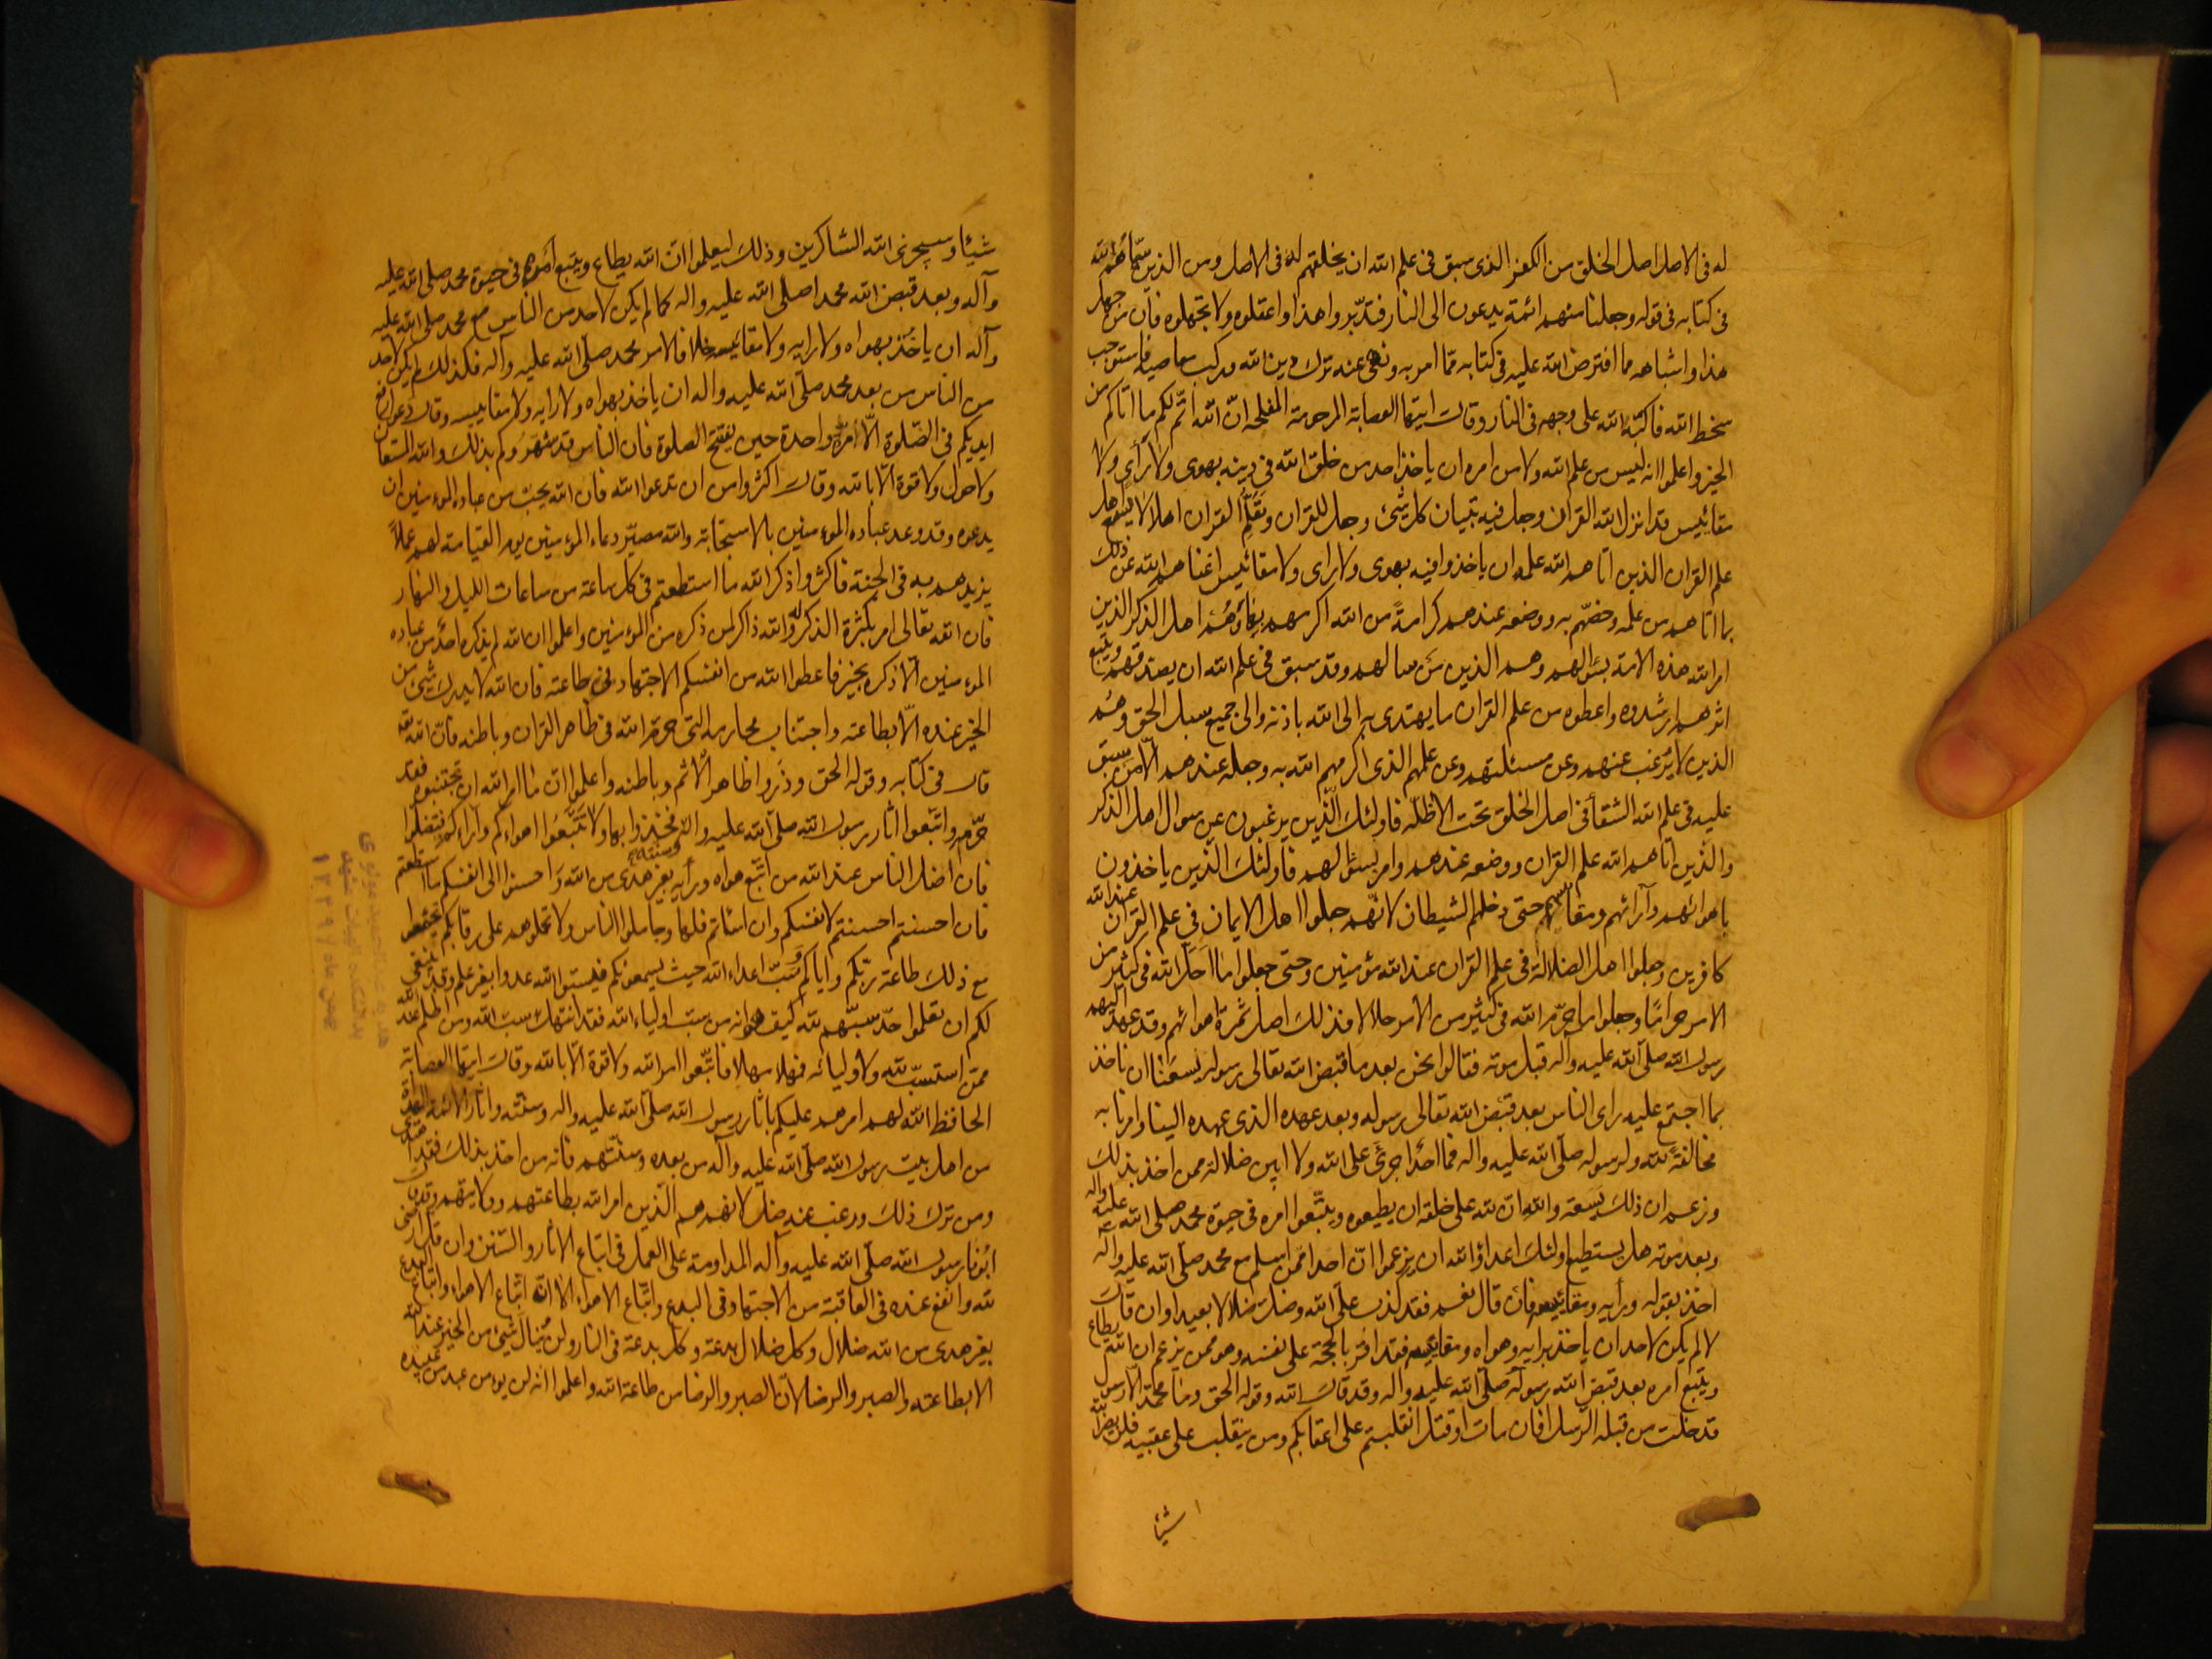 له فى الاصل اصل الخلق من الكفر الذى سبق فى علم الله ان يخلقهم له فى الاصل ومن الذين سمّاهُم الله
فى كتابه فى قوله وجعلنا منهم ائمة يدعون الى النار فتدبّروا هذا واعقلوه ولا تجهلوه فانّ من جهل
هذا واشباهه مما افترض الله عليه فى كتابه ممّا امر به ونهى عنه ترك دين الله وركب معاصيه فاستوجب
سخط الله فاكبّه الله على وجهه فى النار وقال ايتها العصابة المرحومة المفلحة انّ الله اتمّ لكم ما اتاكم من
الخير واعلموا انه ليس من علم الله ولا من امره ان ياخذ احد من خلق الله فى دينه بهوى ولا رأى ولا
مقائيس قد انزل الله القران وجعل فيه تبيان كل شئ وجعل للقران وتعلّم القران اهلا لا يسع اهل
علم القران الذين اتاهم الله علمه ان ياخذوا فيه بهوى ولا راى ولا مقائيس اغناهم الله عن ذلك
بما اتاهم من علمه وخصّهم به ووضعه عندهم كرامةً من الله اكرمهم بها وهُم اهل الذكر الذين
امر الله هذه الامة بسؤالهم وهم الذين من سالهم وقد سبق فى علم الله ان يصدقهم ويتّبع
اثرهم ارشدوه واعطوه من علم القران ما يهتدى به الى الله باذنه والى جميع سبل الحق وهُم
الذين لا يرغب عنهم وعن مسئلتهم وعن علمهم الذى اكرمهم الله به وجعله عندهم الّا من سبق
عليه فى علم الله الشقاء فى اصل الخلق تحت الاظلّة فاولئك الّذين يرغبون عن سوال اهل الذكر
والذين اتاهم الله علم القران ووضعه عندهم وامر بسؤالهم فاولئك الّذين ياخذون
باهوائهم وآرائهم ومقائيسهم حتى دخلهم الشيطان لانّهم جعلوا اهل الايمان فى علم القران عند الله
كافرين وجعلوا اهل الضلالة فى علم القران عند الله مؤمنين وحتى جعلوا ما احلّ الله فى كثير من
الامر حرامًا وجعلوا ما حرّم الله فى كثير من الامر حلالا فذلك اصل ثمرة اهوائهم وقد عهد اليهم
رسول الله صلّى الله عليه وآله قبل موته فقالوا نحن بعد ما قبض الله تعالى رسوله يسعنا ان ناخذ
بما اجتمع عليه راى الناس بعد قبض الله تعالى رسوله وبعد عهده الذى عهده الينا وامرنا به
مخالفةً لله ولرسوله صلّى الله عليه واله فما احدٌ اجرى على الله ولا ابين ضلالة ممن اخذ بذلك
وزعم ان ذلك يَسَعه والله انّ لله على خلقه ان يطيعوه ويتّبعوا امره فى حيوة محمد صلى الله عليه واله
وبعد موته هل يستطيع اولئك اعداؤ الله ان يزعموا انّ احدا ممّن اسلم مع محمد صلّى الله عليه وآله
اخذ بقوله ورأيه ومقائيسه فان قال نعم فقد كذب على الله وضلّ ضلالا بعيدا وان قال
لا لم يكن لاحد ان ياخذ برايه وهواه ومقائيسه فقد اقرّ بالحجّة على نفسه وهو ممن يزعم ان الله يطاع
ويتّبع امره بعد قبض الله رسوله صلّى الله عليه واله وقد قال الله وقوله الحق وما محمّد الّا رسول
قد خلت من قبله الرّسل افان مات او قتل انقلبتم على اعقابكم ومن ينقلب على عقبيه فلن يضر الله
شيئا
شيئا وسيجزى الله الشاكرين وذلك ليعلموا انّ الله يطاع ويتبع امره فى حيوة محمد صلى الله عليه
وآله وبعد قبض الله محمدا صلى الله عليه واله كما لم يكن لاحد من الناس مع محمد صلى الله عليه
وآله ان ياخُذ بهواه ولا رايه ولا مقائيسه خلافا لامر محمد صلّى الله عليه وآله فكذلك لم يكن لاحد
من الناس من بعد محمد صلّى الله عليه واله ان ياخذ بهواه ولا رايه ولا مقاييسه وقال دعوا رفع
ايديكم فى الصّلوة الّا مرة واحدة حين يفتتح الصلوة فان الناس قد شهروكم بذلك والله المستعان
ولا حول ولا قوة الّا بالله وقال اكثروا من ان تدعوا الله فان الله يحبّ من عباده المؤمنين ان
يدعوه وقد وعد عباده المؤمنين بالاستجابة والله مصيّر دعاء المؤمنين يوم القيامة لهم عملاً
يزيدهم به فى الجنة فاكثروا ذكر الله ما استطعتم فى كل ساعة من ساعات الليل والنهار
فان الله تعالى امر بكثرة الذكر له والله ذاكر لمن ذكره من المؤمنين واعلموا ان الله لم يذكره احدٌ من عباده
المؤمنين الّا ذكره بخير فاعطوا الله من انفسكم الاجتهاد فى طاعته فان الله لا يدرك شئ من
الخير عنده الّا بطاعته واجتناب محارمه التى حرّم الله فى ظاهر القران وباطنه فانّ الله تعه
قال فى كتابه وقوله الحق وذروا ظاهر الاثم وباطنه واعلموا انّ ما امر الله ان تجتنبوه فقد
حرّمه واتّبعوا اثار رسول الله صلّى الله عليه واله وسنته فخذوا بها ولا تتّبعوا اهواءكم وآراءكم فتضلّوا
فان اضل الناس عند الله من اتّبع هواه ورأيه بغير هدى من الله وَاحسنوا الى انفسكم ما استطعتم
فان احسنتم احسنتم لانفسكم وان اسأتم فلها وجاملوا الناس ولا تحملوهم على رقابكم تجمعوا
مع ذلك طاعة ربّكم واياكم وسَبّ اعداء الله حيث يسمعونكم فيسبّوا الله عدوا بغير علم وقد ينبغى
لكم ان تعلموا حدّ سبّهم لله كيف هو انه من سبّ اولياء الله فقد انتهك سبّ الله ومن اظلم عند الله
ممّن استسبّ لله ولاوليائه فمهلا مهلا فاتّبعوا امر الله ولا قوة الّا بالله وقال ايتها العصابة
الحافظ الله لهم امرهم عليكم باثار رسول الله صلّى الله عليه واله وسنّته واثار الائمة الهداة
من اهل بيت رسول الله صلّى الله عليه وآله من بعده وسنّتهم فانه من اخذ بذلك فقد اهتدى
ومن ترك ذلك ورغب عنه ضلّ لانهم هم الّذين امر الله بطاعتهم وولايتهم وقد قال
ابُونا رسول الله صلّى الله عليه وآله المداومة على العمل فى اتباع الاثار والسّنن وان قلّ ارضى
لله وانفع عنده فى العاقبة من الاجتهاد فى البدع واتّباع الاهواء الا انّ اتّباع الاهواء واتّباع البدع
بغير هدى من الله ضلال وكل ضلال بدعة وكل بدعة فى النار ولن يُنال شئ من الخير عند الله
الا بطاعته والصبر والرضا لانّ الصبر والرضا من طاعة الله واعلموا انه لن يؤمن عبد من عبيده